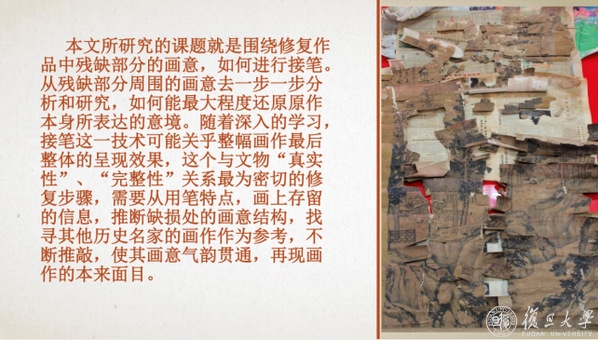 本文所研究的课题就是围绕修复作
品中残缺部分的画意，如何进行接笔。
从残缺部分周围的画意去一步一步分
析和研究，如何能最大程度还原原作
本身所表达的意境。随着深入的学习，
接笔这一技术可能关乎整幅画作最后
整体的呈现效果，这个与文物“真实
性”、“完整性”关系最为密切的修
复步骤，需要从用笔特点，画上存留
的信息，推断缺损处的画意结构，找
寻其他历史名家的画作作为参考，不
断推敲，使其画意气韵贯通，再现画
作的本来面目。
復旦大學
FUDAN UNIVERSITY